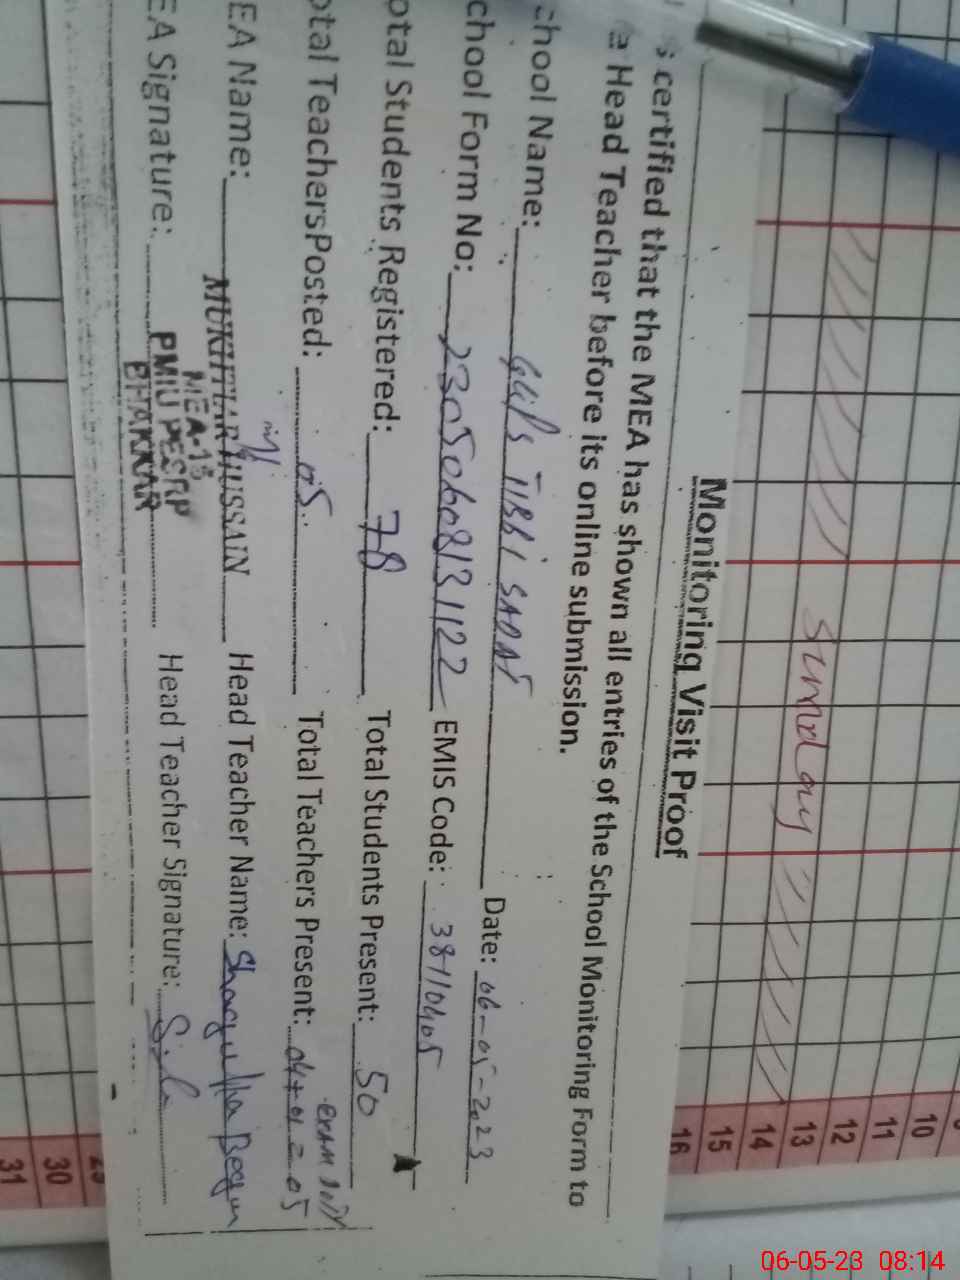 Monitoring Visit Proof
is certified that the MEA has shown all entries of the School Monitoring Form to
Head Teacher before its online submission.
chool Name: GGPS TIBBI SADAT Date: 06-05-2023
chool Form No: 23050608131122 EMIS Code: 38110405
otal Students Registered: 78 Total Students Present: 50
otal TeachersPosted: 05 Total Teachers Present: 04+01=05
exam duty
EA Name: MUKHTAR HUSSAIN Head Teacher Name: Shagufta Begum
MEA-13
PMIU PESRP
BHAKKAR
EA Signature: Head Teacher Signature:
Sunday
10
11
12
13
14
15
16
30
31
06-05-23 08:14